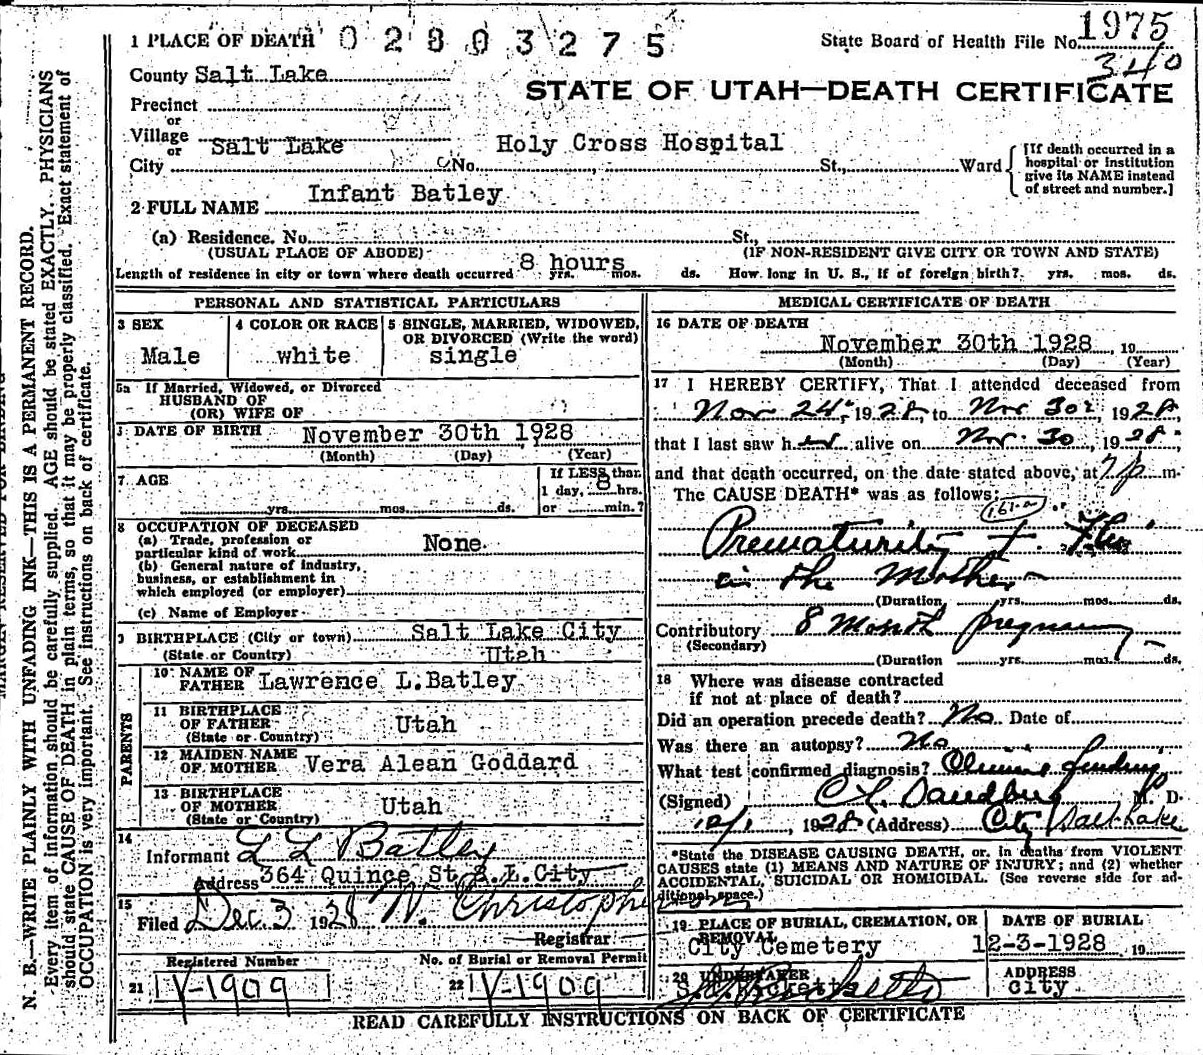 1 PLACE OF DEATH 02803275 State Board of Health File No. 1975
340
County Salt Lake
STATE OF UTAH—DEATH CERTIFICATE
Precinct
or
Village
or Salt Lake Holy Cross Hospital
City No. St., Ward
[If death occurred in a
hospital or institution
give its NAME instead
of street and number.]
Infant Batley
2 FULL NAME
(a) Residence. No. St.,
(USUAL PLACE OF ABODE) (IF NON-RESIDENT GIVE CITY OR TOWN AND STATE)
Length of residence in city or town where death occurred 8 hours yrs. mos. ds. How long in U. S., if of foreign birth? yrs. mos. ds.
PERSONAL AND STATISTICAL PARTICULARS
3 SEX 4 COLOR OR RACE 5 SINGLE, MARRIED, WIDOWED,
OR DIVORCED (Write the word)
Male white single
5a If Married, Widowed, or Divorced
HUSBAND OF
(OR) WIFE OF
DATE OF BIRTH November 30th 1928
(Month) (Day) (Year)
7 AGE If LESS than
1 day, 8 hrs.
yrs. mos. ds. or min.?
8 OCCUPATION OF DECEASED
(a) Trade, profession or
particular kind of work None
(b) General nature of industry,
business, or establishment in
which employed (or employer)
(c) Name of Employer
9 BIRTHPLACE (City or town) Salt Lake City
(State or Country) Utah
PARENTS
10 NAME OF
FATHER Lawrence L.Batley
11 BIRTHPLACE
OF FATHER Utah
(State or Country)
12 MAIDEN NAME
OF MOTHER Vera Alean Goddard
13 BIRTHPLACE
OF MOTHER Utah
(State or Country)
14
Informant L L Batley
Address 364 Quince St S.L.City
15
Filed Dec. 3 1928 W. Christopherson
Registrar
Registered Number No. of Burial or Removal Permit
21 V-1909 22 V-1909
MEDICAL CERTIFICATE OF DEATH
16 DATE OF DEATH
November 30th 1928, 19
(Month) (Day) (Year)
17 I HEREBY CERTIFY, That I attended deceased from
Nov 24, 1928, to Nov 30, 1928,
that I last saw h alive on Nov. 30, 1928,
and that death occurred, on the date stated above, at 7 p m.
The CAUSE DEATH* was as follows:
161-a
Prematurity + Flu
in the Mother
(Duration yrs. mos. ds.
Contributory 8 month pregnancy
(Secondary)
(Duration yrs. mos. ds.
18 Where was disease contracted
if not at place of death?
Did an operation precede death? No Date of
Was there an autopsy? No
What test confirmed diagnosis?
(Signed) M. D.
12/1, 1928 (Address) City Salt Lake
*State the DISEASE CAUSING DEATH, or, in deaths from VIOLENT
CAUSES state (1) MEANS AND NATURE OF INJURY; and (2) whether
ACCIDENTAL, SUICIDAL OR HOMICIDAL. (See reverse side for ad-
ditional space.)
19 PLACE OF BURIAL, CREMATION, OR DATE OF BURIAL
REMOVAL
City Cemetery 12-3-1928 19
20 UNDERTAKER ADDRESS
city
READ CAREFULLY INSTRUCTIONS ON BACK OF CERTIFICATE
N. B.—WRITE PLAINLY WITH UNFADING INK—THIS IS A PERMANENT RECORD.
Every item of information should be carefully supplied. AGE should be stated EXACTLY. PHYSICIANS
should state CAUSE OF DEATH in plain terms, so that it may be properly classified. Exact statement of
OCCUPATION is very important. See instructions on back of certificate.